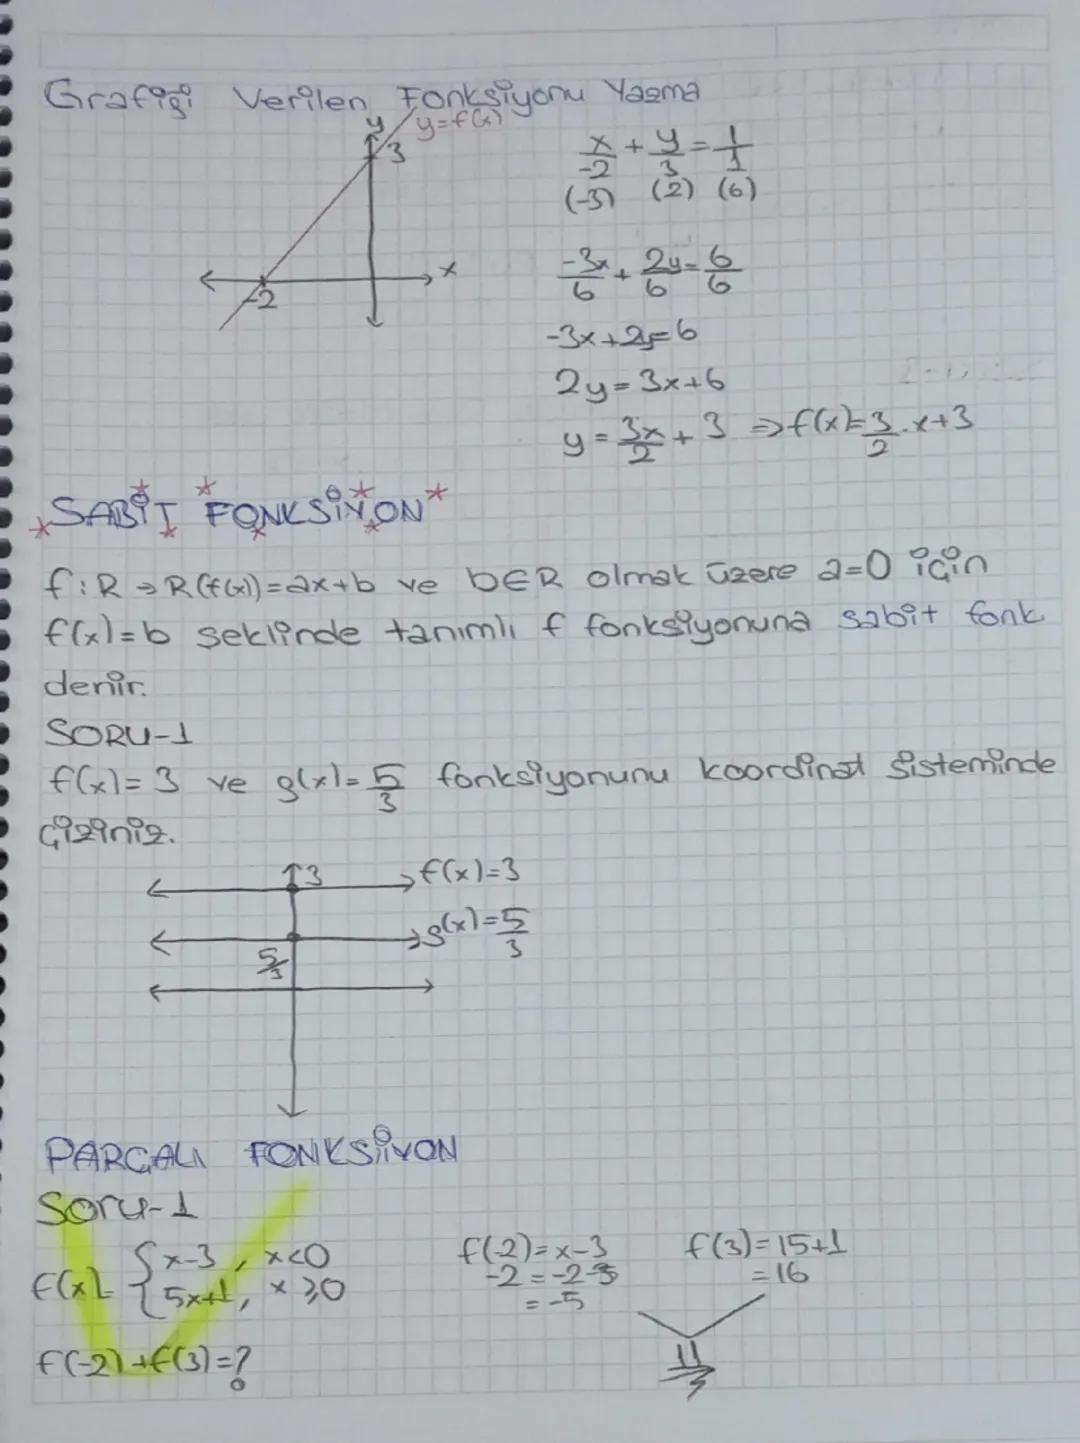 Grafiği Verilen Fonksiyonu Yazma
y y=f(x)
3
x
-2
x/-2 + y/3 = 1/1
(-3) (2) (6)
-3x/6 + 2y/6 = 6/6
-3x+2y=6
2y=3x+6
y = 3x/2 + 3 ⇒ f(x)=3/2.x+3
SABİT FONKSİYON
f:R→R(f(x))=ax+b ve b∈R olmak üzere a=0 için
f(x)=b seklinde tanımlı f fonksiyonuna sabit fonk
denir.
SORU-1
f(x)=3 ve g(x)=5/3 fonksiyonunu koordinat sisteminde
çiziniz.
3 f(x)=3
g(x)=5/3
5/3
PARÇALI FONKSİYON
Soru-1
f(x)= { x-3, x<0
5x+1, x≥0
f(-2)+f(3)=?
f(-2)=x-3
-2=-2-3
=-5
f(3)=15+1
=16
11